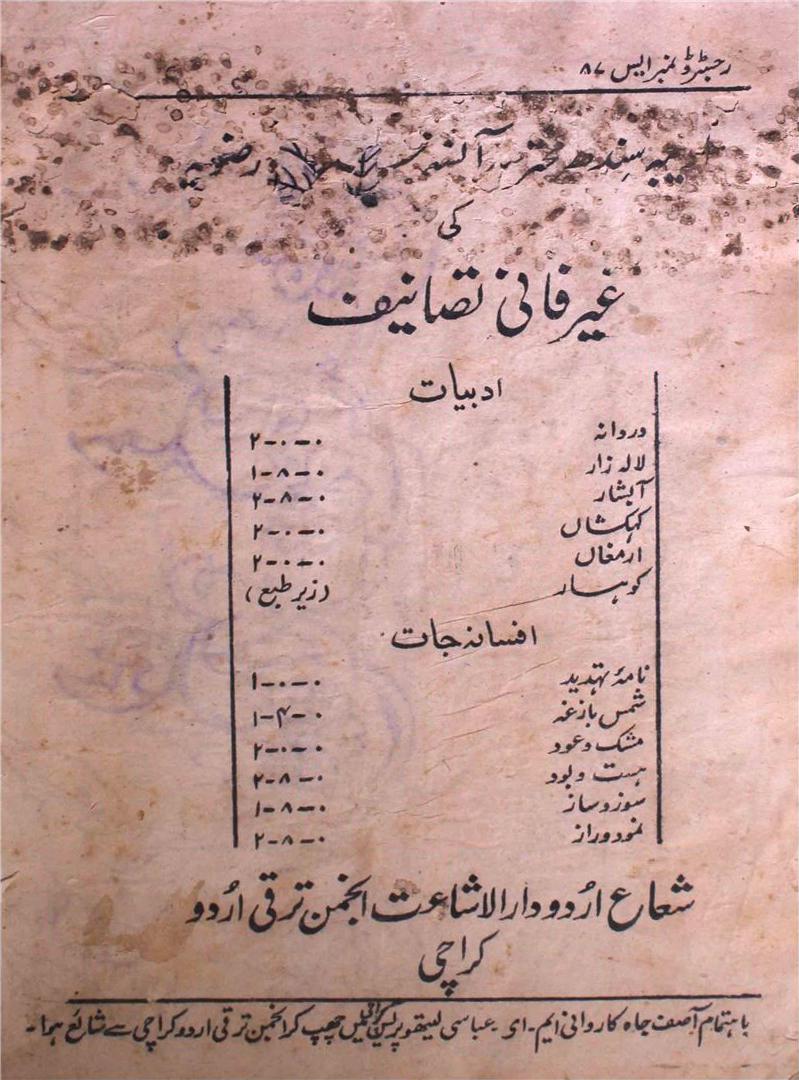 رجسٹرڈ نمبر ایس ۸۷
سندھ محترمہ آنسہ رضویہ
کی
غیر فانی تصانیف
ادبیات
دروانہ ۰-۰-۲
لالہ زار ۰-۸-۱
آبشار ۰-۸-۲
کہکشاں ۰-۰-۲
ارمغاں ۰-۰-۲
کوہسار (زیر طبع)
افسانہ جات
نامۂ تہدید ۰-۰-۱
شمس بازغہ ۰-۴-۱
مشک و عود ۰-۰-۲
ہست و بود ۰-۸-۲
سوز و ساز ۰-۸-۱
نمود و راز ۰-۸-۲
شعاع اُردو دارالاشاعت انجمن ترقی اُردو
کراچی
باہتمام آصف جاہ کاروانی ایم-ای-عباسی لیتھو پریس کراچی میں چھپ کر انجمن ترقی اردو کراچی سے شائع ہوا-